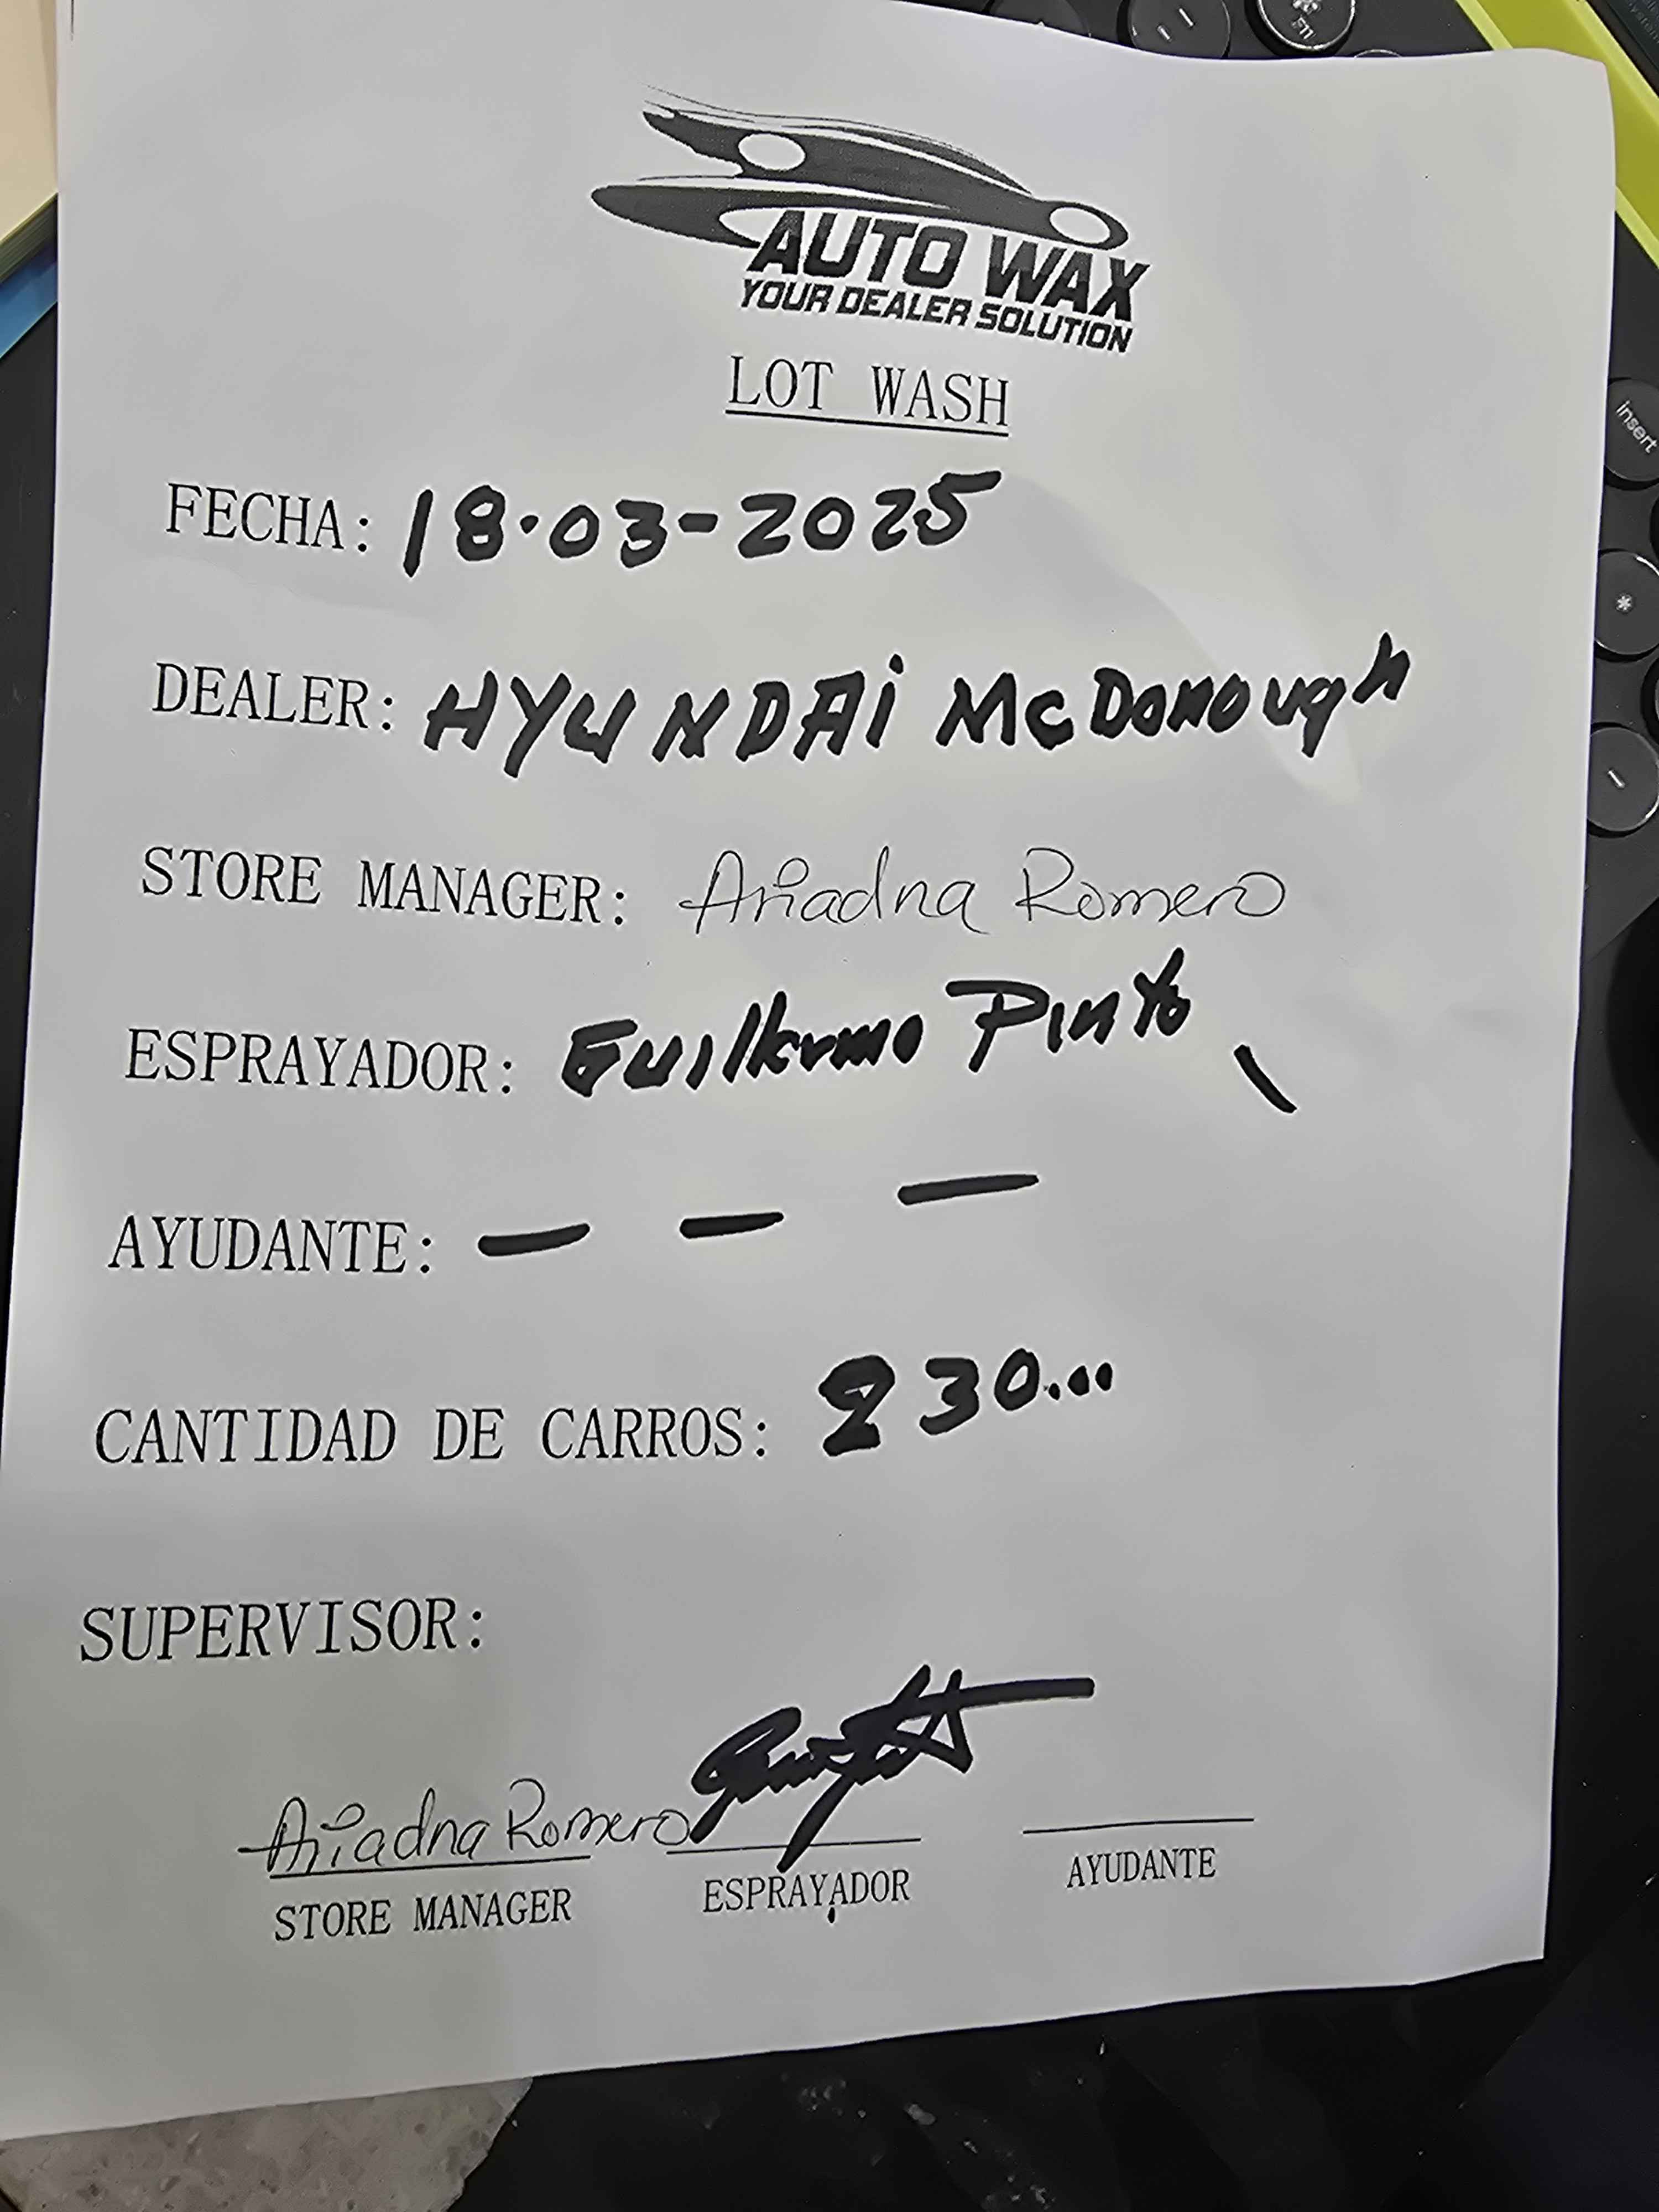 AUTO WAX
YOUR DEALER SOLUTION
LOT WASH
FECHA: 18.03-2025
DEALER: HYUNDAi McDonough
STORE MANAGER: Ariadna Romero
ESPRAYADOR: Guillermo Pinto
AYUDANTE: — — —
CANTIDAD DE CARROS: 230...
SUPERVISOR:
Ariadna Romero
STORE MANAGER ESPRAYADOR AYUDANTE
F11
insert
*
-